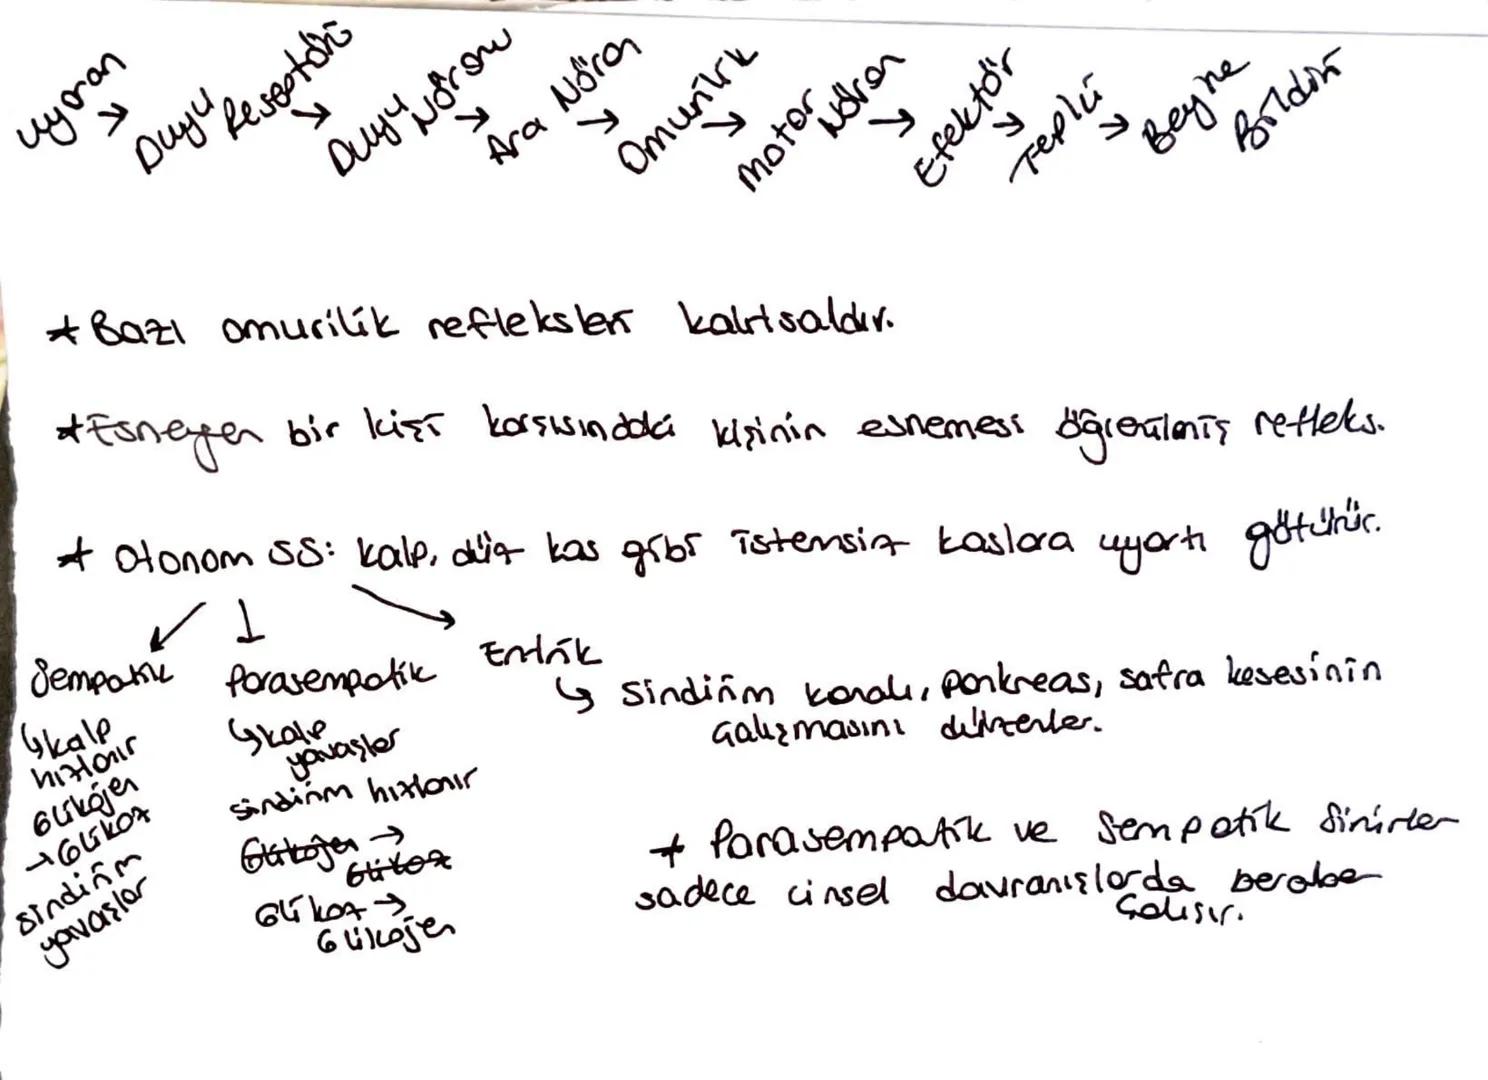 Uyaran → Duyu Reseptörü → Duyu Nöronu → Ara Nöron → Omurilik → Motor Nöron → Efektör → Tepki → Beyne Bildirir
* Bazı omurilik refleksleri kalıtsaldır.
* Esneyen bir kişi karşısındaki kişinin esnemesi öğrenilmiş refleks.
* Otonom SS: kalp, düz kas gibi istemsiz kaslara uyartı götürür.
Sempatik
↳ kalp
hızlanır
Glikojen
→ Glikoz
sindirim
yavaşlar
Parasempatik
↳ kalp
yavaşlar
sindirim hızlanır
Glikojen →
Glikoz
Glikoz →
Glikojen
Enterik
↳ Sindirim kanalı, pankreas, safra kesesinin
çalışmasını düzenler.
* Parasempatik ve Sempatik Sinirler
sadece cinsel davranışlarda beraber
çalışır.